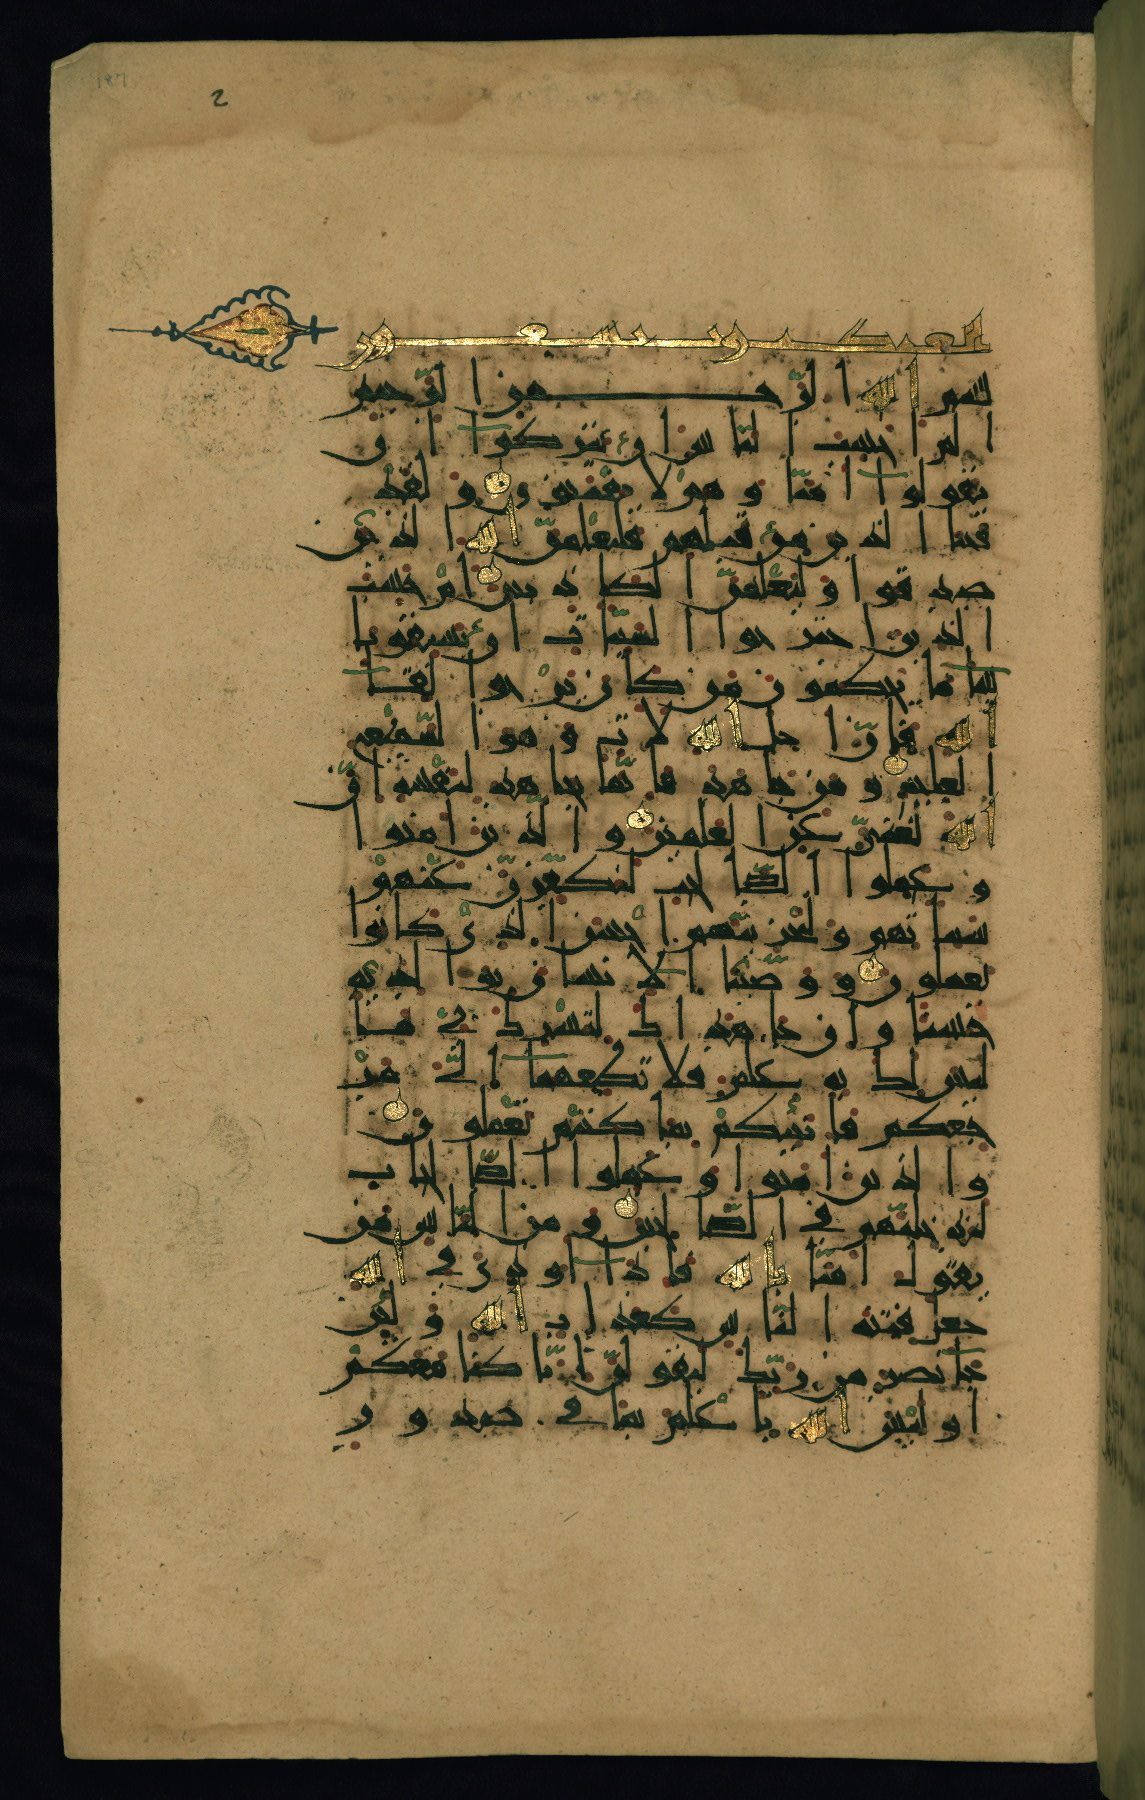 187
2
العنكبوت تسع و
بسم الله الرحمن الرحيم
الم احسب الناس ان يتركوا ان
يقولوا امنا وهم لا يفتنون ولقد
فتنا الذين من قبلهم فليعلمن الله الذين
صدقوا وليعلمن الكاذبين ام حسب
الذين اجترحوا السيات ان يسبقونا
سا ما يحكمون من كان يرجوا لقا
الله فان اجل الله لات وهو السميع
العليم ومن جاهد فانما يجاهد لنفسه ان
الله لغني عن العلمين والذين امنوا
وعملوا الصالحات لنكفرن عنهم
سياتهم ولنجزينهم احسن الذي كانوا
يعملون ووصينا الانسان بوالديه
حسنا وان جاهداك لتشرك بي ما
ليس لك به علم فلا تطعهما الي مر
جعكم فانبئكم بما كنتم تعملون
والذين امنوا وعملوا الصالحات
لندخلنهم في الصالحين ومن الناس من
يقول امنا بالله فاذا اوذي في الله
جعل فتنة الناس كعذاب الله ولئن
جا نصر من ربك ليقولن انا كنا معكم
اوليس الله باعلم بما في صدور